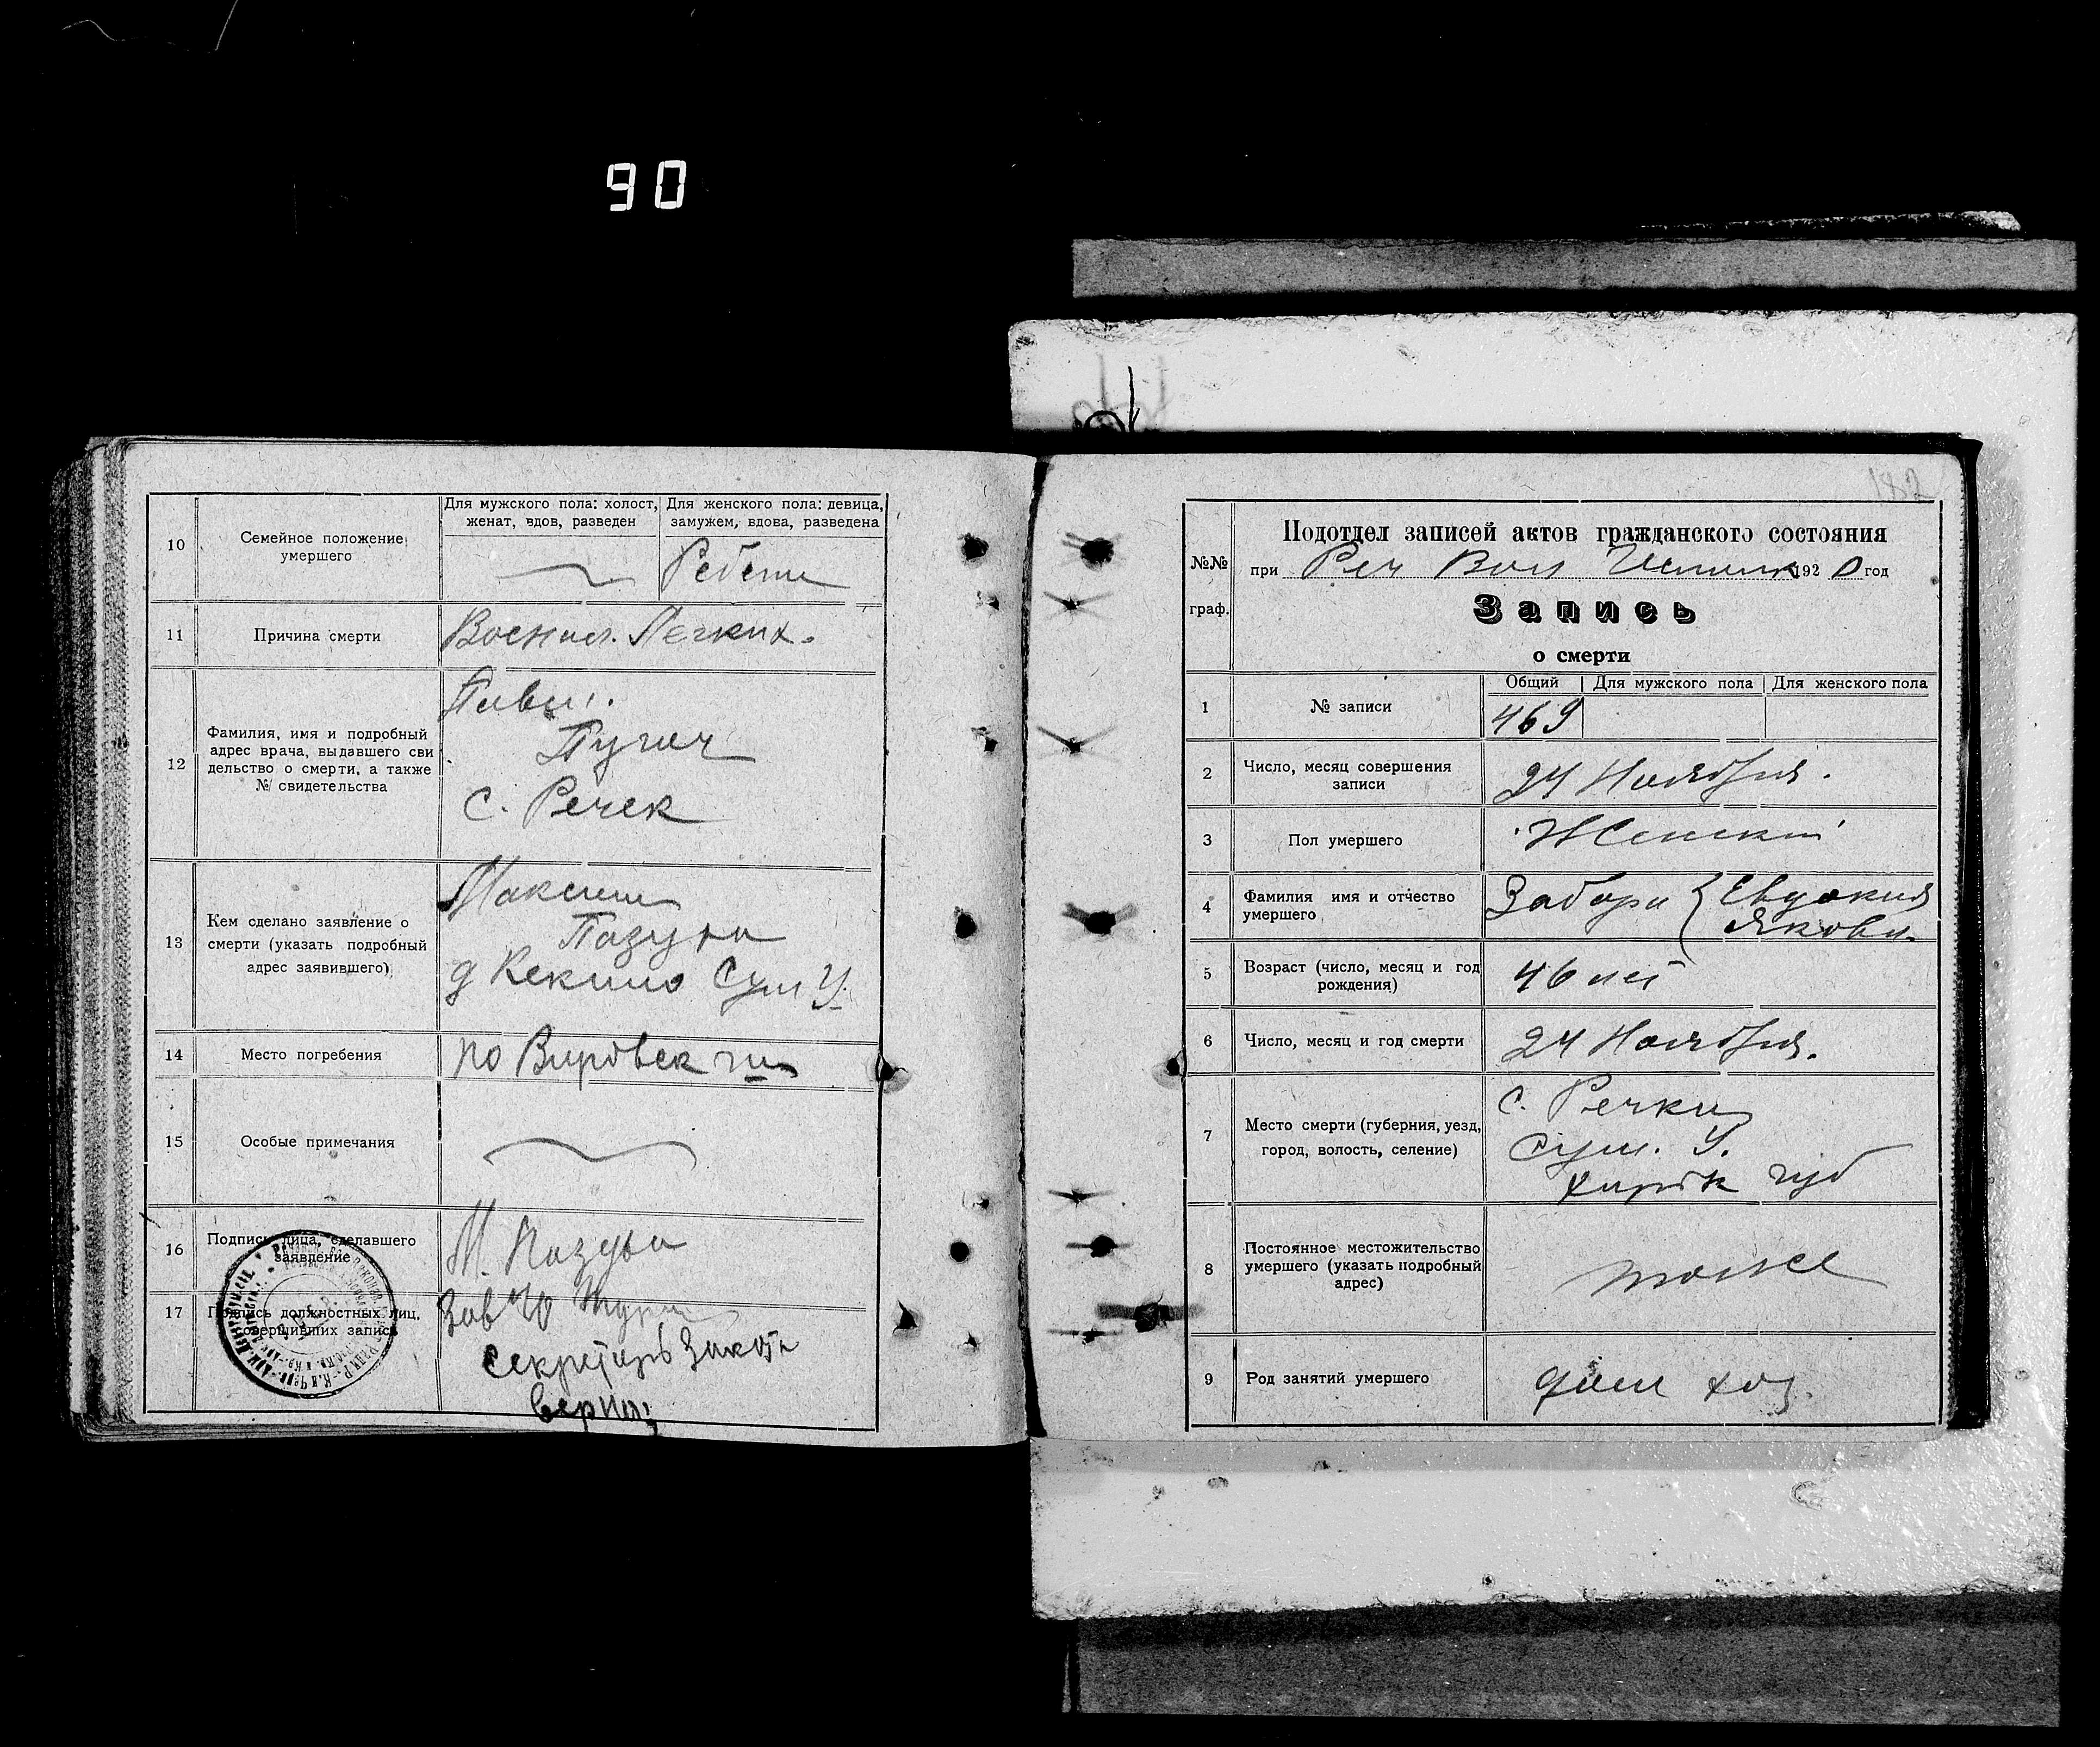 90
10
Семейное положение
умершего
Для мужского пола: холост,
женат, вдов, разведен
Для женского пола: девица,
замужем, вдова, разведена
11
Причина смерти
Воспал. Легких.
12
Фамилия, имя и подробный
адрес врача, выдавшего сви
дельство о смерти, а также
№ свидетельства
с. Речек
13
Кем сделано заявление о
смерти (указать подробный
адрес заявившего)
Максим
14
Место погребения
по Вировск
15
Особые примечания
16
Подпись лица, сделавшего
заявление
М.
17
Подпись должностных лиц,
совершивших запись
Секретарь
Верно:
182
№№
граф.
Подотдел записей актов гражданского состояния
при Реч Вол Исполк 1920 год
Запись
о смерти
1
№ записи
Общий
Для мужского пола
Для женского пола
469
2
Число, месяц совершения
записи
24 Ноября.
3
Пол умершего
Женский
4
Фамилия имя и отчество
умершего
Евдокия
Яковл.
5
Возраст (число, месяц и год
рождения)
46 лет
6
Число, месяц и год смерти
24 Ноября.
7
Место смерти (губерния, уезд,
город, волость, селение)
с. Речки
Сум. У.
Харьк губ
8
Постоянное местожительство
умершего (указать подробный
адрес)
тоже
9
Род занятий умершего
дом хоз.